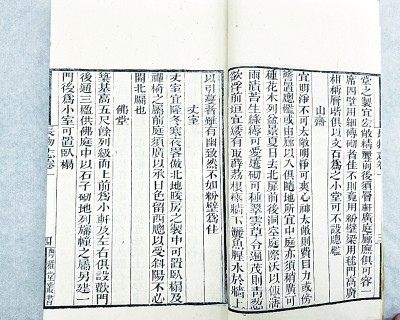 堂之製宜宏敞精麗前後須層軒廣庭廊廡俱可容一
席四壁用細磚砌者佳不則竟用粉壁梁用毬門高廣
相稱層堦俱以文石爲之小堂可不設牕檻
山齋
宜明淨不可太敞明淨可爽心神太敞則費目力或傍
簷置牕檻或由廊以入俱隨地所宜中庭亦須稍廣可
種花木列盆景夏日去北扉前後洞空庭際沃以飯瀋
雨漬苔生綠褥可愛遶砌可種翠雲草令遍茂則青蔥
欲浮前垣宜矮有取薜荔根瘞牆下灑魚腥水於牆上
以引蔓者雖有幽致然不如粉壁爲佳
丈室
丈室宜隆冬寒夜畧倣北地暖房之製中可置臥榻及
禪椅之屬前庭須廣以承日色留西牕以受斜陽不必
開北牖也
佛堂
築基高五尺餘列級而上前爲小軒及左右俱設歡門
後通三楹供佛庭中以石子砌地列旛幢之屬另建一
門後爲小室可置臥榻
長物志卷一
四